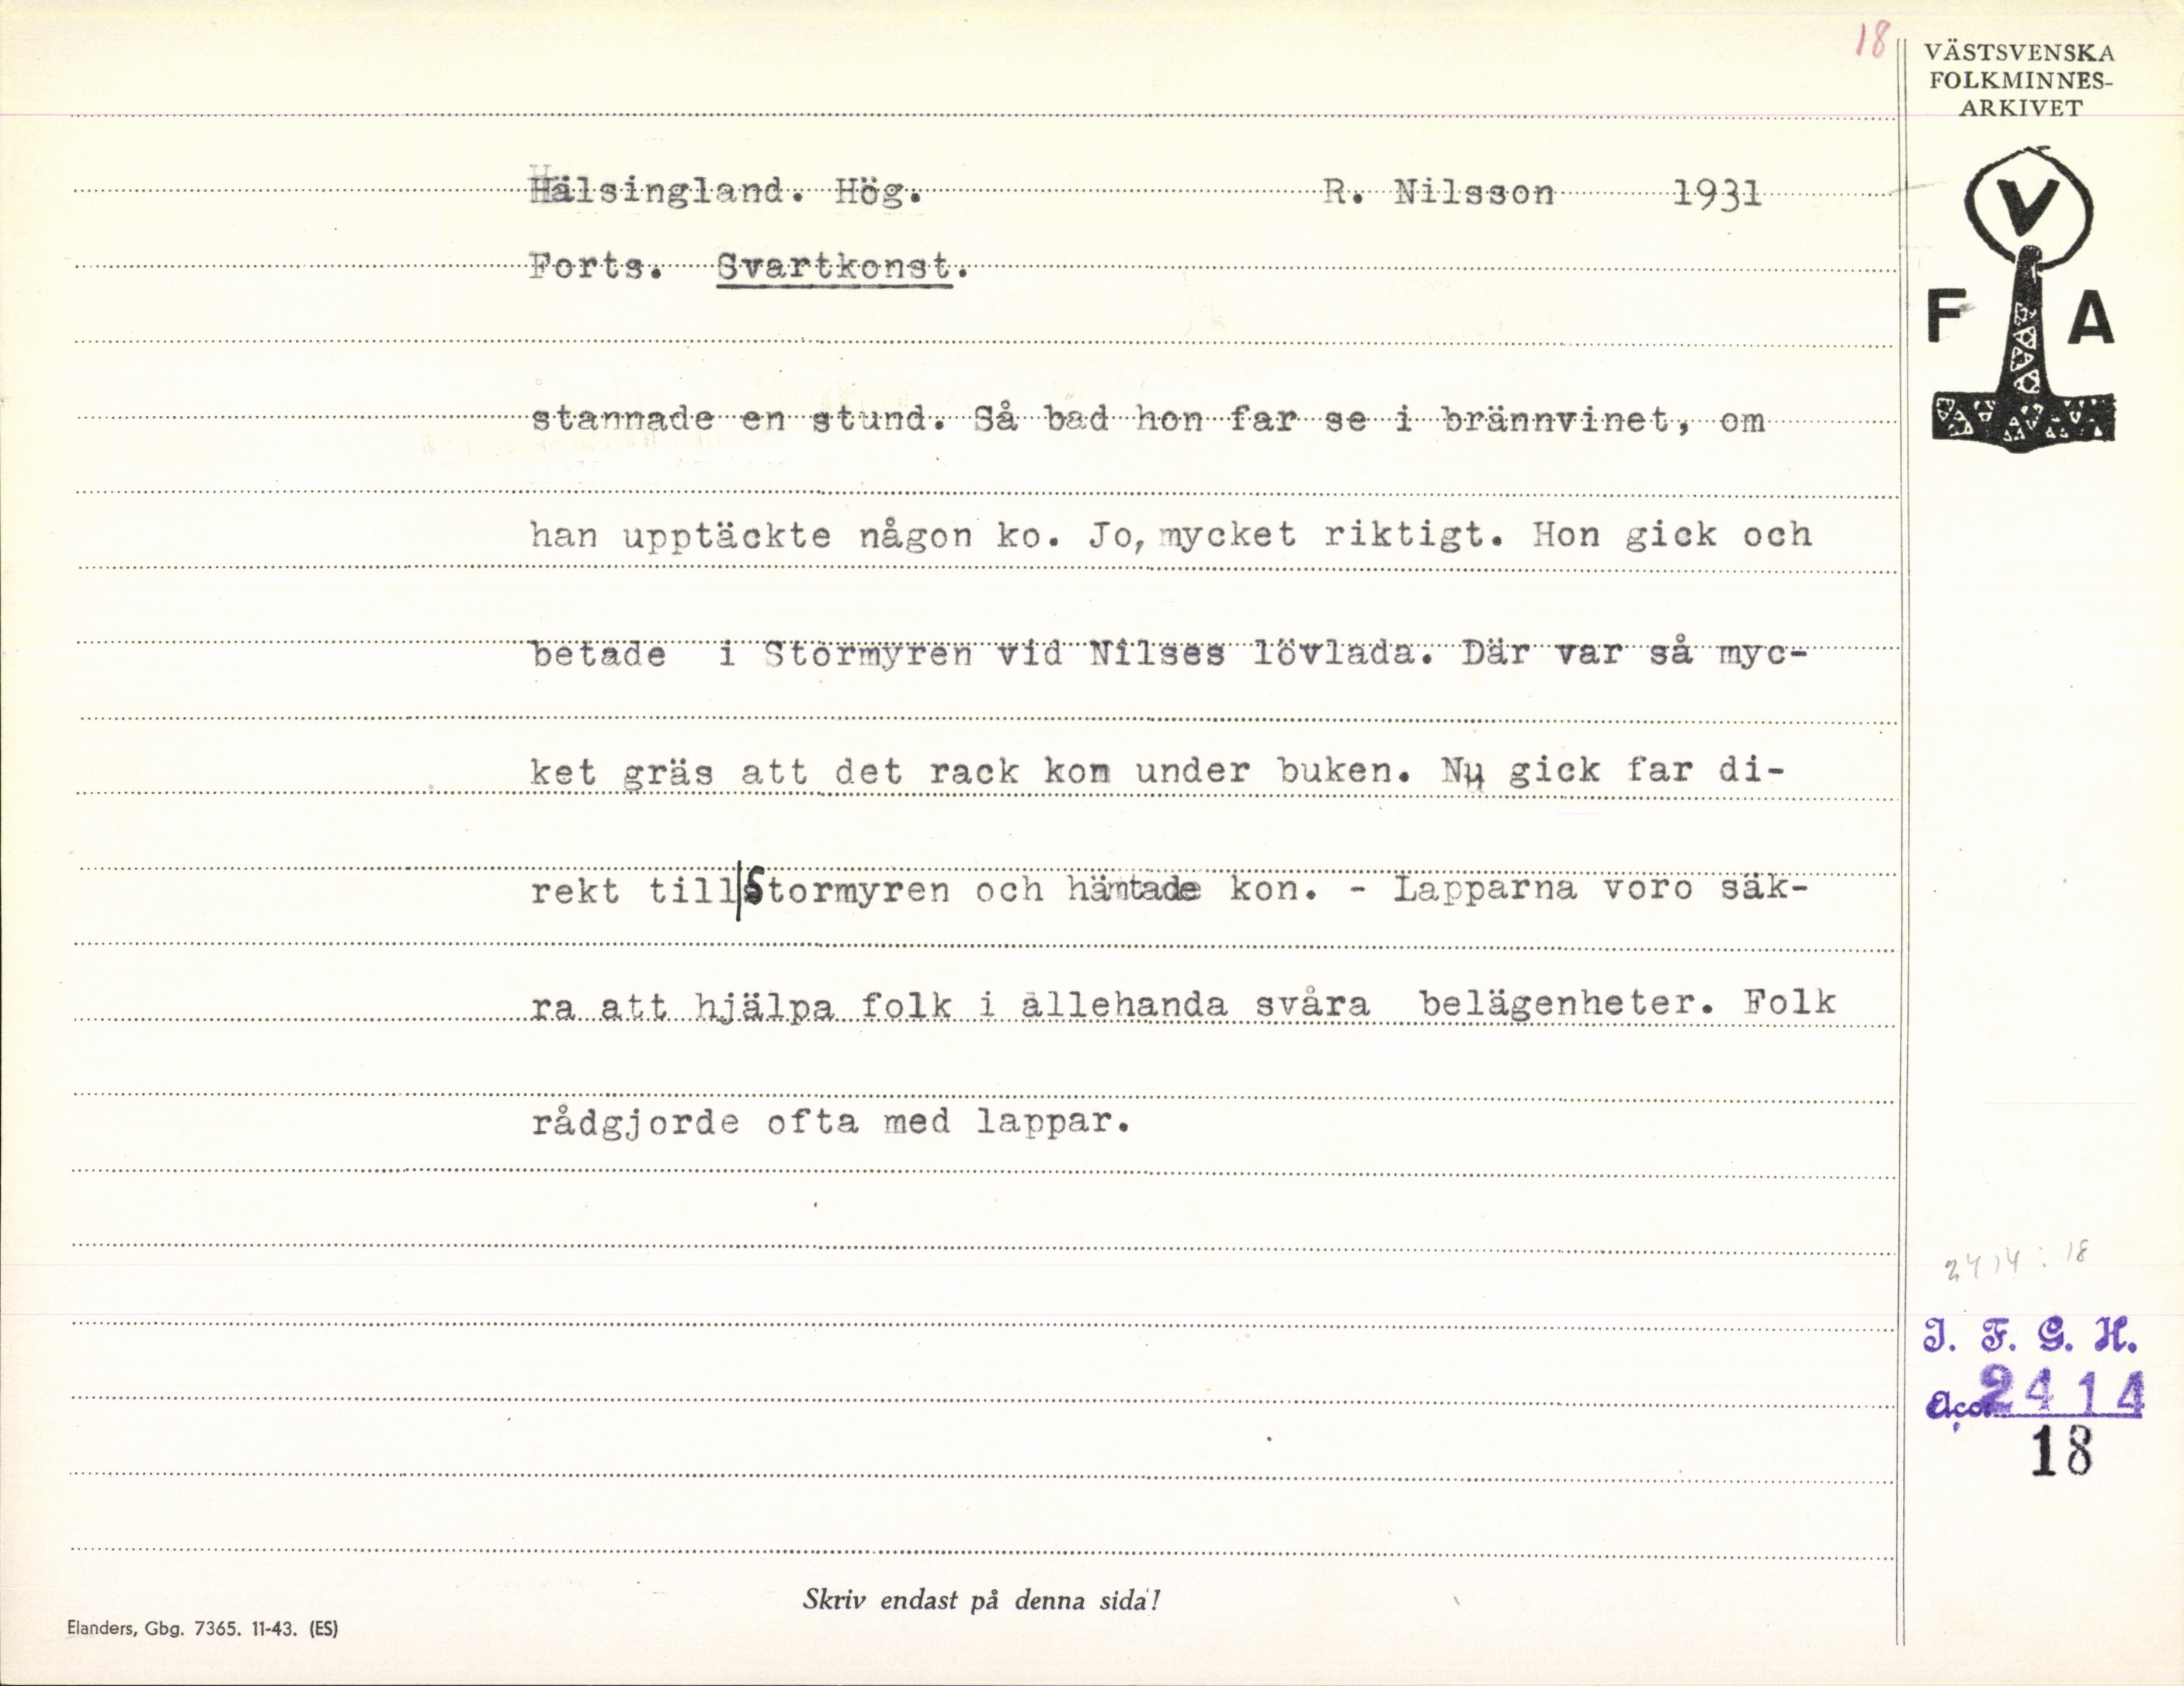 18
VÄSTSVENSKA
FOLKMINNES-
ARKIVET
V
F A
Hälsingland. Hög. R. Nilsson 1931
Forts. Svartkonst.
stannade en stund. Så bad hon far se i brännvinet, om
han upptäckte någon ko. Jo, mycket riktigt. Hon gick och
betade i Stormyren vid Nilses lövlada. Där var så myc-
ket gräs att det rack kom under buken. Nu gick far di-
rekt till|Stormyren och hämtade kon. - Lapparna voro säk-
ra att hjälpa folk i allehanda svåra belägenheter. Folk
rådgjorde ofta med lappar.
2414:18
I. F. G. H.
Acc. 2414
18
Skriv endast på denna sida!
Elanders, Gbg. 7365. 11-43. (ES)